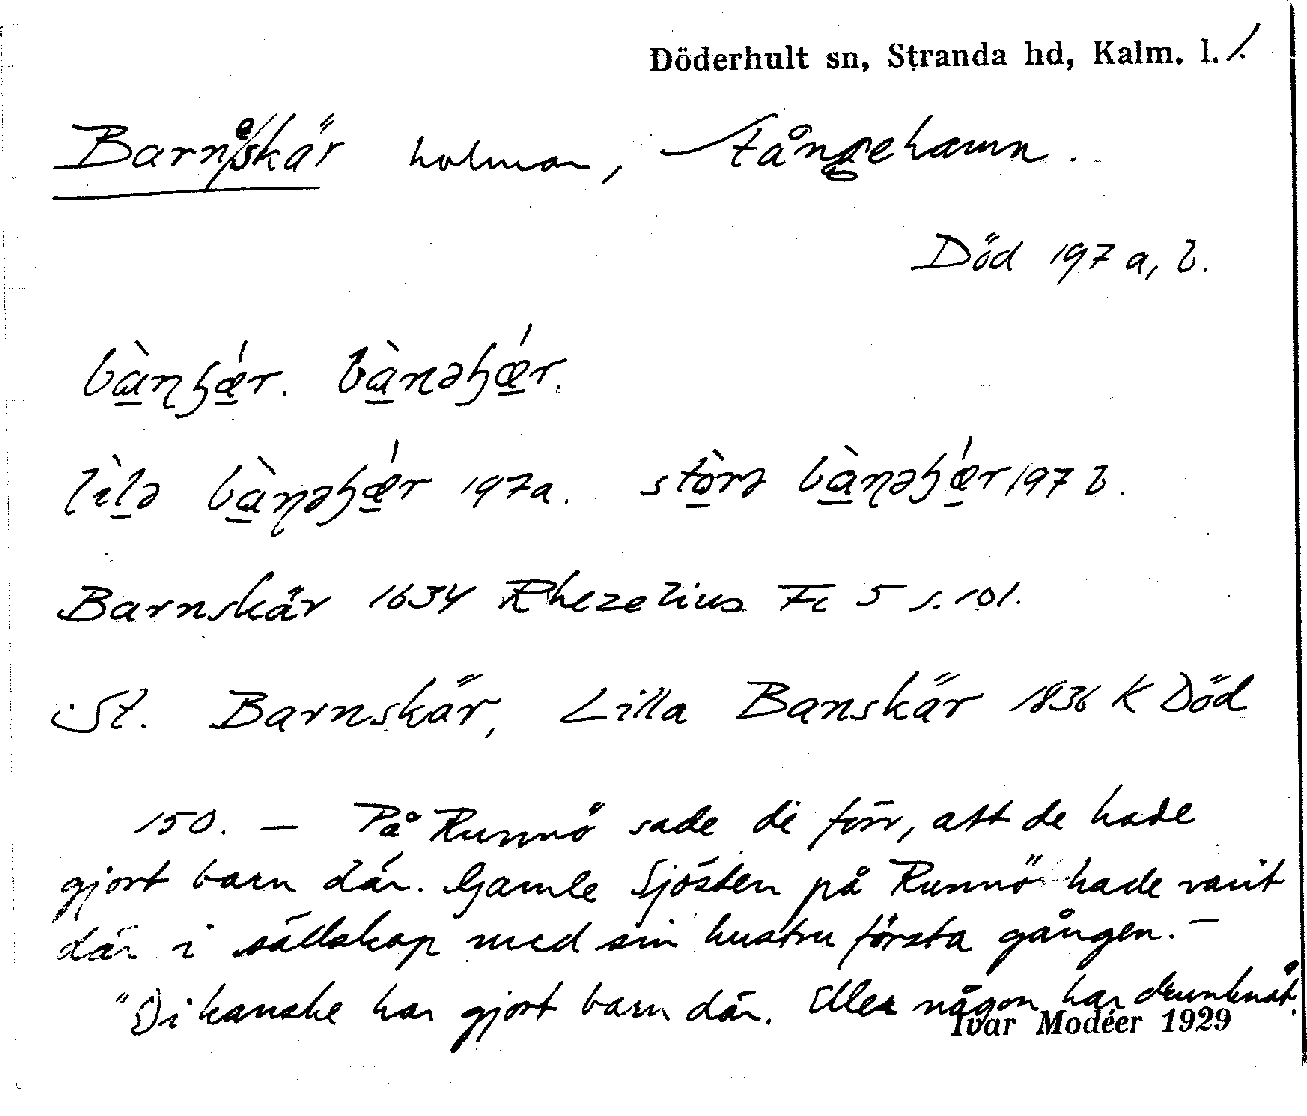 Döderhult sn, Stranda hd, Kalm. l. 1.
Barneskär holmar, Stångehamn.
Död 197 a, b.
bànʃǽr. bànəʃǽr.
lìlə bàɳəʃǽr 197a. stòrə bàɳəʃǽr 197 b.
Barnskär 1634 Rhezelius Fc 5 s. 101.
St. Barnskär, Lilla Banskär 1836 K Död
150. — På Runnö sade di förr, att de hade
gjort barn där. Gamle Sjösten på Runnö hade varit
där i sällskap med sin hustru första gången. —
"Di kanske har gjort barn där. Eller någon har drunknat.
Ivar Modéer 1929